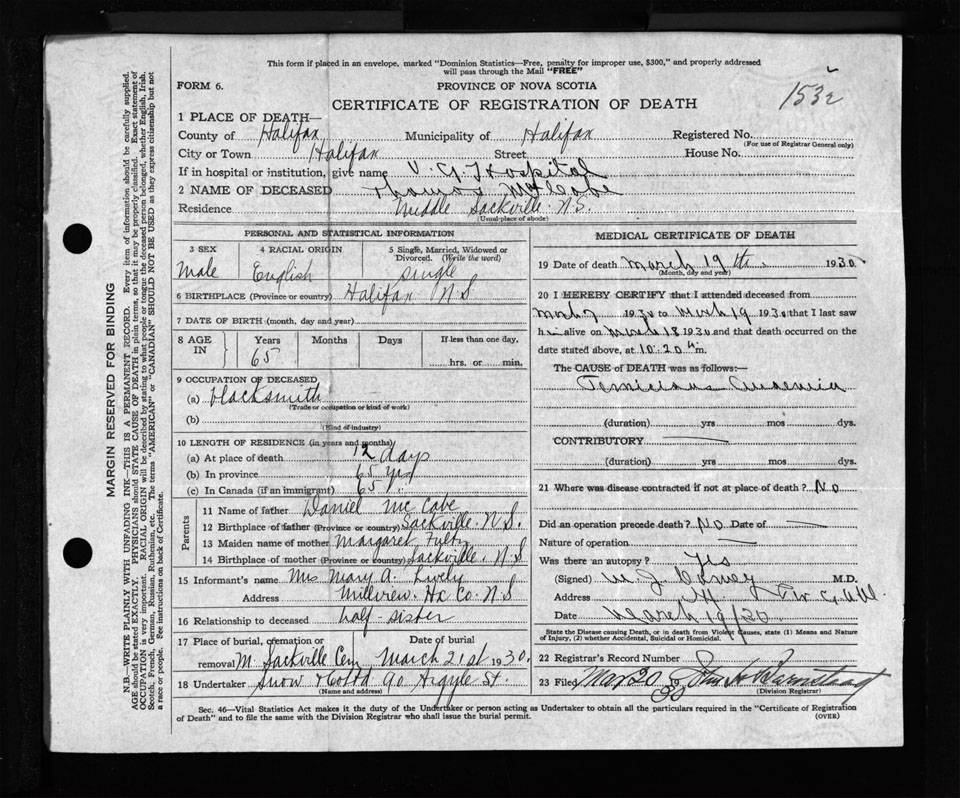 This form if placed in an envelope, marked "Dominion Statistics—Free, penalty for improper use, $300," and properly addressed
will pass through the Mail "FREE"
FORM 6.
PROVINCE OF NOVA SCOTIA
CERTIFICATE OF REGISTRATION OF DEATH
1 PLACE OF DEATH—
County of Halifax Municipality of Halifax Registered No.
(For use of Registrar General only)
City or Town Halifax Street House No.
If in hospital or institution, give name V. G. Hospital
2 NAME OF DECEASED Thomas McCabe
Residence Middle Sackville. N.S.
(Usual place of abode)
PERSONAL AND STATISTICAL INFORMATION
3 SEX 4 RACIAL ORIGIN 5 Single, Married, Widowed or Divorced. (Write the word)
Male English Single
6 BIRTHPLACE (Province or country) Halifax N S
7 DATE OF BIRTH (month, day and year)
8 AGE IN Years Months Days If less than one day.
65 hrs. or min.
9 OCCUPATION OF DECEASED
(a) blacksmith
(Trade or occupation or kind of work)
(b)
(Kind of industry)
10 LENGTH OF RESIDENCE (in years and months)
(a) At place of death 12 days
(b) In province 65 yrs
(c) In Canada (if an immigrant) 65 y.
Parents
11 Name of father Daniel McCabe
12 Birthplace of father (Province or country) Sackville. N S.
13 Maiden name of mother Margaret Fultz
14 Birthplace of mother (Province or country) Sackville. N S
15 Informant's name Mrs Mary A. Lively
Address Millview. Hx Co. N S
16 Relationship to deceased half-sister
17 Place of burial, cremation or removal M. Sackville Cem Date of burial March 21st 1930.
18 Undertaker Snow & Co Ltd 90 Argyle St.
(Name and address)
MEDICAL CERTIFICATE OF DEATH
19 Date of death March 19th 1930
(Month, day and year)
20 I HEREBY CERTIFY that I attended deceased from
March 7 1930 to March 19 1930 that I last saw
h alive on March 18 1930 and that death occurred on
date stated above, at 10.20 m.
The CAUSE of DEATH was as follows:—
Pernicious Anaemia
(duration) yrs mos dys.
CONTRIBUTORY
(duration) yrs. mos. dys.
21 Where was disease contracted if not at place of death? No
Did an operation precede death? No Date of
Nature of operation
Was there an autopsy? Yes
(Signed) M.D.
Address
Date March 19/30
State the Disease causing Death, or in death from Violent Causes, state (1) Means and Nature
of Injury, (2) whether Accidental, Suicidal or Homicidal.
22 Registrar's Record Number
23 Filed Mar 20 1930 John H Barnstead
(Division Registrar)
Sec. 46—Vital Statistics Act makes it the duty of the Undertaker or person acting as Undertaker to obtain all the particulars required in the "Certificate of Registration
of Death" and to file the same with the Division Registrar who shall issue the burial permit.
(OVER)
MARGIN RESERVED FOR BINDING
N.B.—WRITE PLAINLY WITH UNFADING INK—THIS IS A PERMANENT RECORD. Every item of information should be carefully supplied.
AGE should be stated EXACTLY. PHYSICIANS should STATE CAUSE OF DEATH in plain terms, so that it may be properly classified. Exact statement of
OCCUPATION is very important. RACIAL ORIGIN will be described by stating to what people or tongue the deceased person belonged, whether English, Irish,
Scotch, French, German, Russian, Ruthenian, etc. The terms "AMERICAN" or "CANADIAN" SHOULD NOT BE USED as they express citizenship but not
a race or people. See instructions on back of Certificate.